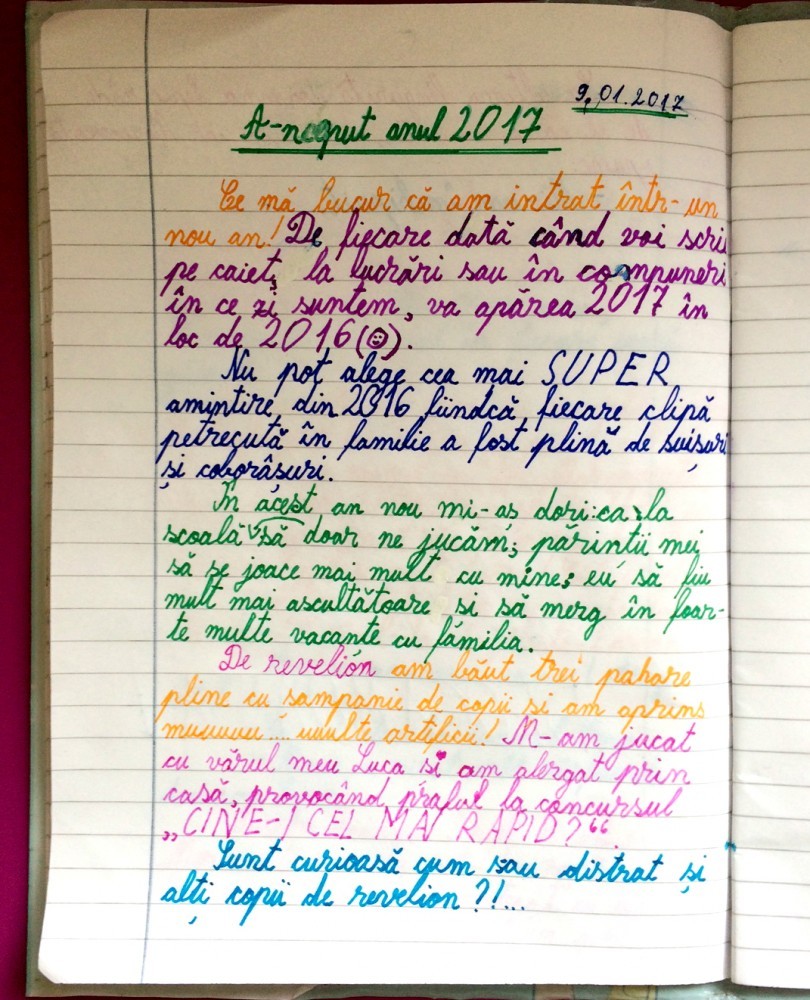 9.01.2017
A-nceput anul 2017
Ce mă bucur că am intrat într-un
nou an! De fiecare dată când voi scrie
pe caiet, la lucrări sau în compuneri
în ce zi suntem, va apărea 2017 în
loc de 2016 (☺).
Nu pot alege cea mai SUPER
amintire din 2016 fiindcă fiecare clipă
petrecută în familie a fost plină de suișuri
și coborâșuri.
În acest an nou mi-aș dori: ca la
școală să doar ne jucăm; părinții mei
să se joace mai mult cu mine; eu să fiu
mult mai ascultătoare si să merg în foar-
te multe vacanțe cu familia.
De revelion am băut trei pahare
pline cu șampanie de copii si am aprins
muuuuu... uuulte artificii! M-am jucat
cu vărul meu Luca si am alergat prin
casă, provocând praful la concursul
„CINE-I CEL MAI RAPID?“.
Sunt curioasă cum sau distrat și
alți copii de revelion?!...